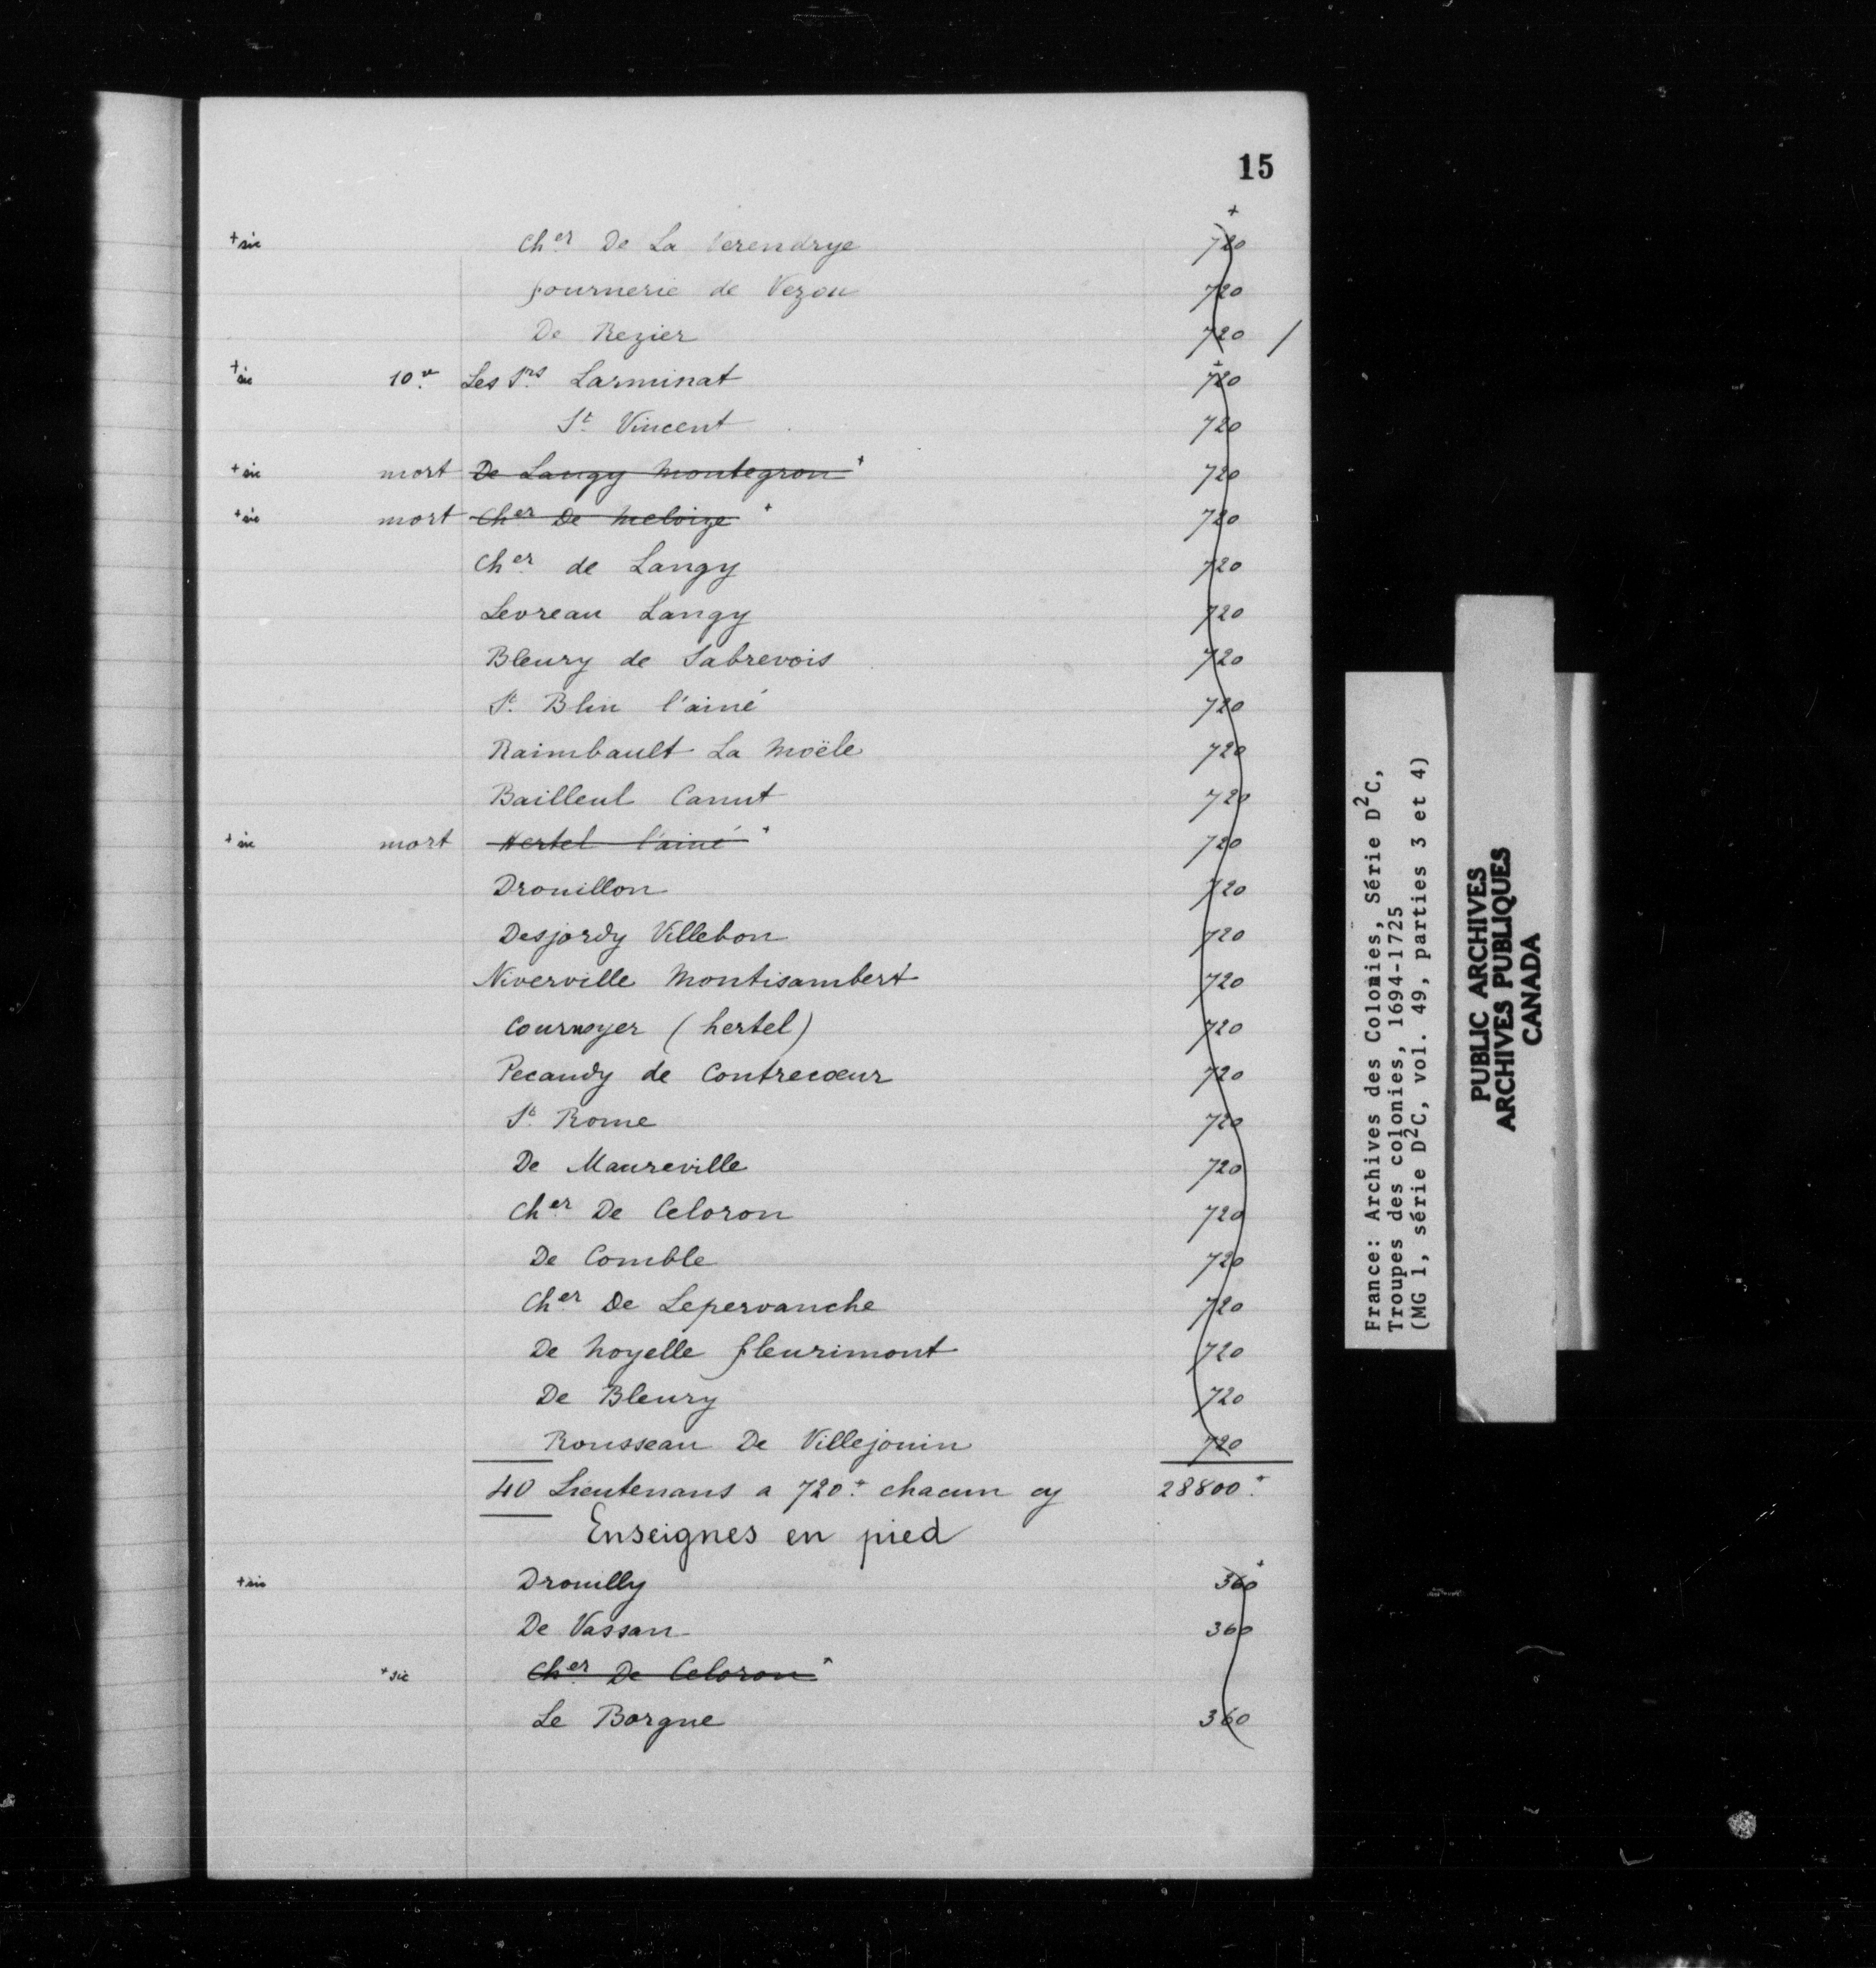 15
+
+sic Cher De La Verendrye 720
fournerie de Vezou 720
De Rezier 720 /
+sic 10.e Les Srs Larminat 720
St Vincent 720
+sic mort De Langy Montegron + 720
+sic mort Cher De Meloize + 720
Cher de Langy 720
Levreau Langy 720
Bleury de Sabrevois 720
St. Blin l'ainé 720
Raimbault La Moële 720
Bailleul Canut 720
+sic mort Hertel l'ainé + 720
Drouillon 720
Desjordy Villebon 720
Niverville Montisambert 720
Cournoyer (hertel) 720
Pecaudy de Contrecoeur 720
St. Rome 720
De Maureville 720
Cher De Celoron 720
De Comble 720
Cher De Lepervanche 720
De Noyelle fleurimont 720
De Bleury 720
Rousseau De Villejouin 720
40 Lieutenans a 720.+ chacun cy 28800.+
Enseignes en pied
+sic Drouilly 360+
De Vassan 360
+sic Cher De Celoron +
Le Borgne 360
France: Archives des Colonies, Série D2C,
Troupes des colonies, 1694-1725
(MG 1, série D2C, vol. 49, parties 3 et 4)
PUBLIC ARCHIVES
ARCHIVES PUBLIQUES
CANADA